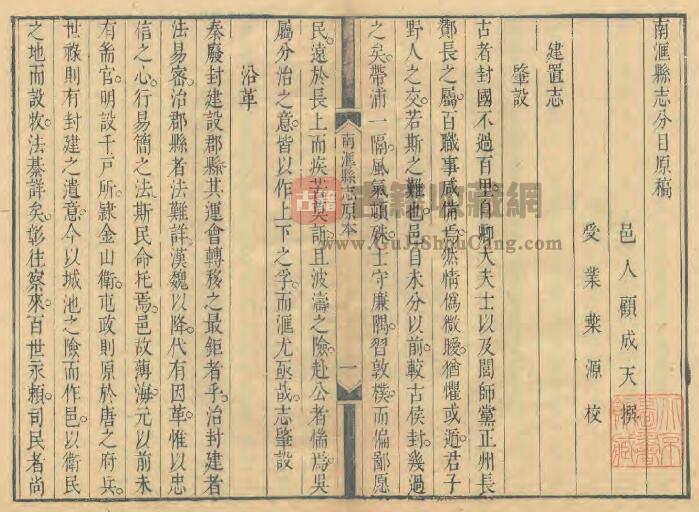 南滙縣志分目原稿
邑人顧成天撰
受業葉源校
建置志
肇設
古者封國不過百里自卿大夫士以及閭師黨正州長
酇長之屬百職事咸備焉然情偽微曖猶懼或遁君子
野人之交若斯之難也邑自未分以前較古侯封幾過
之矣帶浦一隔風氣頓殊士守廉隅習敦樸而偏鄙愿
南滙縣志原本
一
民遠於長上而疾苦莫訴且波濤之險赴公者惴焉吳
屬分治之意皆以作上下之孚而滙尤亟哉志肇設
沿革
秦廢封建設郡縣其運會轉移之最鉅者乎治封建者
法易密治郡縣者法難詳漢魏以降代有因革惟以忠
信之心行易簡之法斯民命托焉邑故薄海元以前未
有耑官明設千戶所隸金山衛屯政則原於唐之府兵
世祿則有封建之遺意今以城池之險而作邑以衛民
之地而設牧法綦詳矣彰往察來百世永賴司民者尚
古籍收藏網
www.GuJiShouCang.com